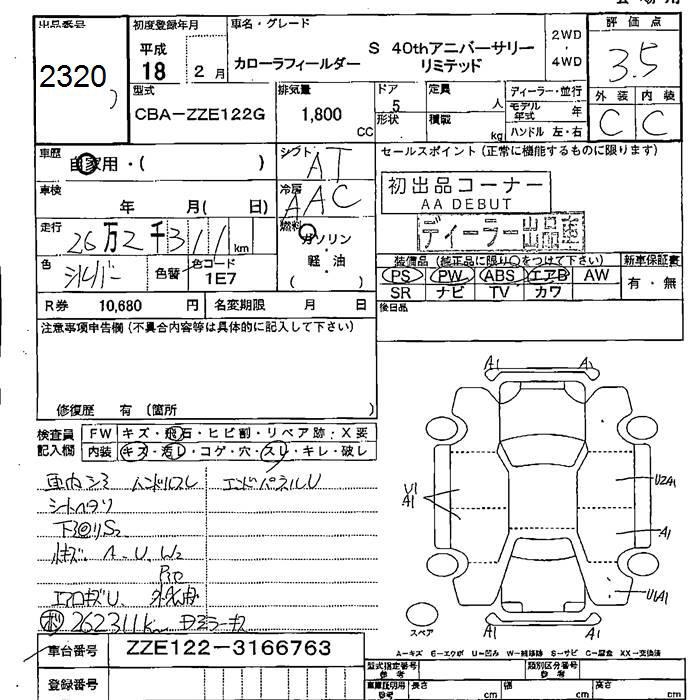 出品番号
2320
初度登録年月
平成
18 2 月
車名・グレード
カローラフィールダー
S 40thアニバーサリー
リミテッド
2WD
・
4WD
評価点
3.5
外装 内装
C C
型式
CBA-ZZE122G
排気量
1,800
CC
ドア
5
形状
定員
人
積載
kg
ディーラー・並行
モデル
年式 年
ハンドル 左・右
車歴
自家用・( )
シフト
AT
車検
年 月( 日)
冷房
AAC
走行
26万2千311 km
燃料
ガソリン
・
軽・油
( )
色
シルバー
色替
色コード
1E7
R券 10,680 円 名変期限 月 日
セールスポイント(正常に機能するものに限ります)
初出品コーナー
AA DEBUT
ディーラー出品車
装備品(純正品に限り○をつけて下さい)
新車保証書
PS PW ABS エアB AW
SR ナビ TV カワ
有・無
後日品
注意事項申告欄(不具合内容等は具体的に記入して下さい)
修復歴 有〔箇所 〕
検査員
記入欄
FW キズ・飛石・ヒビ割・リペア跡・X要
内装 キズ・汚レ・コゲ・穴・スレ・キレ・破レ
車内シミ ハンドルスレ
エンドパネルU
シートヘタリ
下回りS2
キズ A-U、W2
エアロキズU
262311km
A1
A1
U1
A1
U2A1
A1
U1A1
スペア
A1
A1
A-キズ E-エクボ U-凹み W-補修跡 S-サビ C-腐食 XX-交換済
車台番号 ZZE122-3166763
登録番号
型式指定番号
参考
類別区分番号
参考
車庫証明用
参考
長さ cm
幅 cm
高さ cm